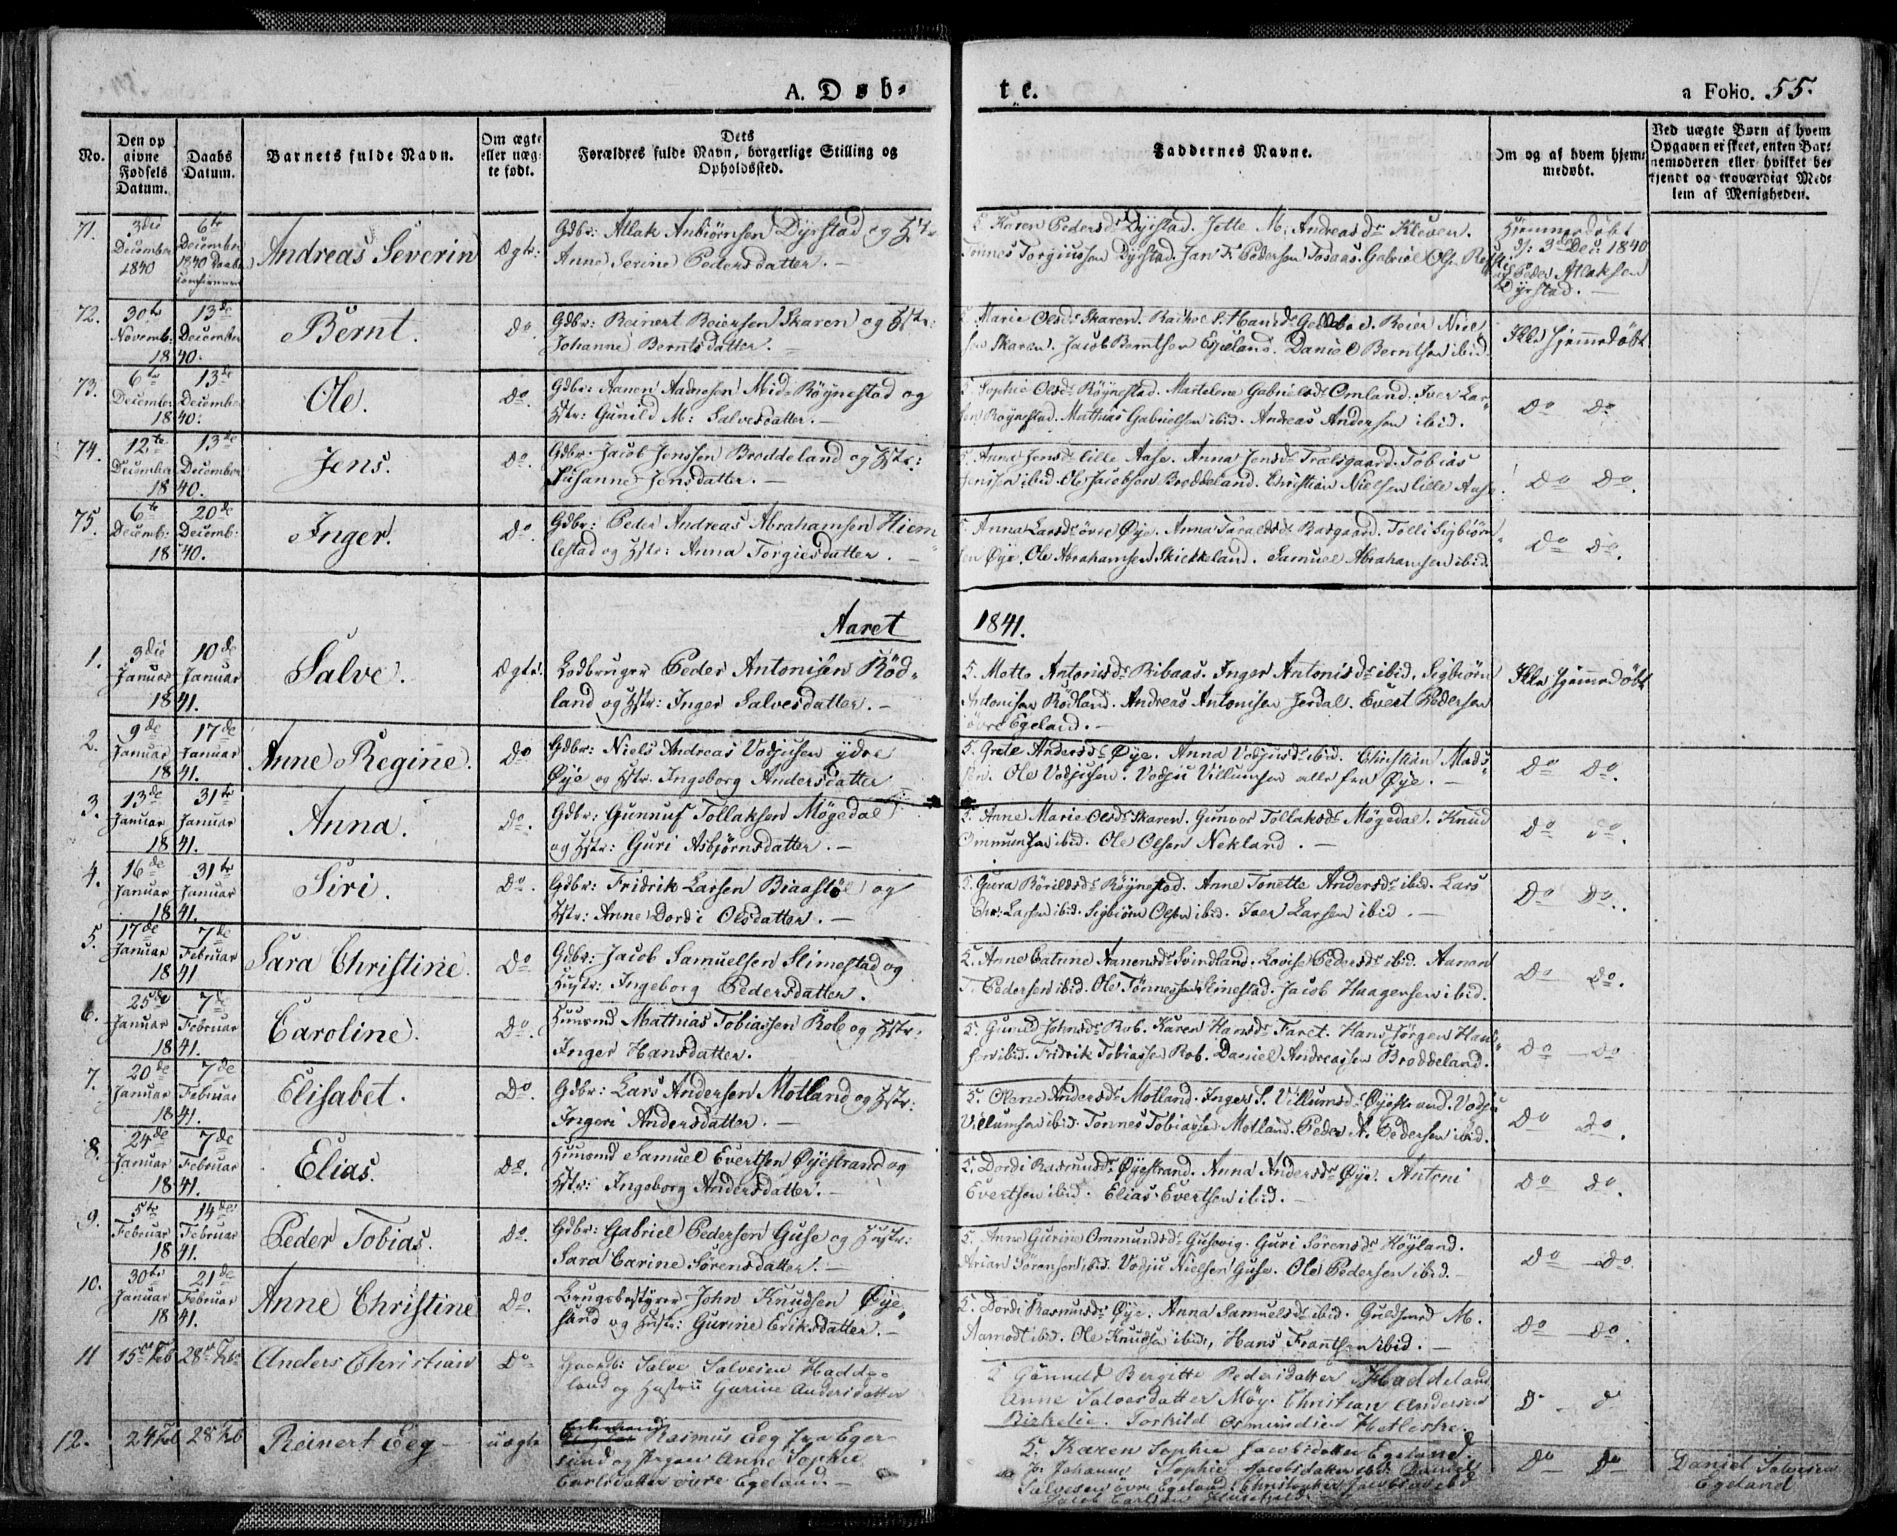 A. Døb-
te.
a Folio. 55.
No.
Den op
givne
Fødsels
Datum.
Daabs
Datum.
Barnets fulde Navn.
Om ægte
eller uæg-
te født.
Dets
Forældres fulde Navn, borgerlige Stilling og
Opholdssted.
Faddernes Navne.
Om og af hvem hjem-
medøbt.
Ved uægte Børn af hvem
Opgaven er skeet, enten Bar-
nemoderen eller hvilket be-
kjendt og troværdigt Med-
lem af Menigheden.
71.
3die
December
1840
6te
December
1840 Daaben
Andreas Severin
Ægte.
Gdbr: Atlak Anbiørnsen Dyrstad og Hstr
Anne Serine Pedersdatter. —
5 Karen Pedersdr Dyrstad. Jette M. Andreasdr Kleven.
Tønnes Torgiussen Dyrstad. Jan F. Pedersen Gabriel Ols.
Hjemmedøbt
d: 3die Dec: 1840
af Peder Atlaksen
Dyrstad. —
72.
30te
Novemb:
13de
December
1840.
Bernt.
Do
Gdbr: Reinert Reiersen Skaren og Hstr:
Johanne Berntsdatter. —
5 Marie Olsdr Skaren. Hansdr Reier Niel
sen Skaren. Jacob Berntsen Egeland. Daniel Berntsen ibid.
Ikke Hjemmedøbt
73.
6te
Decemb:
13de
December
1840.
Ole.
Do
Gdbr: Aanen Aadnesen Mid-Røynestad og
Hstr: Gunild M: Salvesdatter. —
5 Sophie Olsdr Røynestad. Martelene Gabrielsdr Omland. Iver Lar-
sen Røynestad. Mathias Gabrielsen ibid. Andreas Andersen ibid.
Do Do
74.
12te
December
13de
December
1840.
Jens.
Do
Gdbr. Jacob Jenssen Broddeland og Hstr:
Susanne Jensdatter. —
5. Anne Jensdr lille Aase. Anna Jensdr Trælsgaard. Tobias
Jenssen ibid. Ole Jacobsen Broddeland. Christian Nielsen lille Aase.
Do Do.
75.
6te
Decemb:
20de
Decemb:
1840.
Inger.
Do.
Gdbr: Peder Andreas Abrahamsen Hiem-
lestad og Hstr: Anna Torgiesdatter. —
5 Anna Larsdr övre Øye. Anna Taraldsdr Rasgaard. Tolli Sigbiørn-
sen Øye. Ole Abrahamsen Skiekkeland. Samuel Abrahamsen ibid.
Do Do.
Aaret
1841.
1.
3die
Januar
10de
Januar
1841.
Salve.
Ægte.
Lodbruger Peder Antonisen Röd-
land og Hstr: Inger Salvesdatter. —
5. Motte Antonisdr Ribaas. Inger Antonisdr ibid. Sigbiørn
Antonisen Rödland. Andreas Antonisen Jerdal. Evert Pedersen
övre Egeland. —
Ikke Hjemmedøbt
2.
9de
Januar
17de
Januar
1841.
Anne Regine.
Do
Gdbr: Niels Andreas Vodjusen ydre
Øye og Hstr. Ingeborg Andersdatter
5. Grete Andersdr Øye. Anna Vodjusdr ibid. Christian Mads-
sen. Ole Vodjusen. Vodju Villumsen alle fra Øye. —
Do Do.
3.
13de
Januar
31te
Januar
1841.
Anna.
Do.
Gdbr: Gunnuf Tollaksen Møgedal
og Hstr: Guri Asbjørnsdatter. —
5. Anne Marie Olsdr Skaren. Gunvor Tollaksdr Møgedal. Knud
Ommundsen ibid. Ole Olsen Nekland. —
Do Do.
4.
16de
Januar
31te
Januar
1841.
Siri.
Do.
Gdbr: Fridrik Larsen Biaastöl og
Hstr: Anne Dordi Olsdatter. —
5. Røynestad. Anne Tonette Andersdr ibid. Lars
Chr. Larsen ibid. Sigbiørn Olsen ibid. Iver Larsen ibid. —
Do Do.
5.
17de
Januar
7de
Februar
1841
Sara Christine.
Do
Gdbr: Jacob Samuelsen Slimestad og
Hustr: Ingeborg Pedersdatter.
5. Anne Catrine Aanensdr Svindland. Lovise Pedersdr ibid. Aanon
T. Pedersen ibid. Ole Tönnessen Slimestad. Jacob Haagensen ibid.
Do Do.
6.
25de
Januar
7de
Februar
1841.
Caroline.
Do.
Huusmd Mathias Tobiassen Rob og Hstr:
Inger Hansdatter.
5. Gunild Johnsdr Rob. Karen Hansdr Faret. Hans Jørgen Han-
sen ibid. Fridrik Tobiassen Rob. Daniel Andreassen Broddeland.
Do Do
7.
20de
Januar
7de
Februar
1841.
Elisabet.
Do.
Gdbr: Lars Andersen Motland og Hstr:
Ingeri Andersdatter. —
5. Olene Andersdr Motland. Inger S. Villumsdr Øyestrand. Vodju
Villumsen ibid. Tønnes Tobiassen Motland. Peder A. Pedersen ibid.
Do Do.
8.
24de
Januar
7de
Februar
1841.
Elias.
Do.
Huusmd Samuel Evertsen Øyestrand og
Hstr: Ingeborg Andersdatter. —
5. Dordi Rasmusdr Øyestrand. Anna Andersdr Øye. Antoni
Evertsen ibid. Elias Evertsen ibid. —
Do Do.
9.
5te
Februar
14de
Februar
1841.
Peder Tobias.
Do
Gdbr: Gabriel Pedersen Guse og Hustr:
Sara Carine Sørensdatter. —
5. Anne Gurine Ommundsdr Gusevig. Guri Sørensdr Høyland.
Arian Sørensen ibid. Vodju Nielsen Guse. Ole Pedersen ibid. —
Do Do.
10.
30te
Januar
21de
Februar
1841.
Anne Christine
Do.
Brugsbestyrer John Knudsen Øye-
sund og Hustr: Gurine Eriksdatter. —
5. Dordi Rasmusdr Øye. Anna Samuelsdr ibid. Gudmund M.
Aamodt ibid. Ole Knudsen ibid., Hans Frantsen ibid. —
Do Do.
11
15de Feb
28de Feb
Anders Christian
Do
Gaardbr: Salve Salvesen Hadde-
land og Hustru Gurine Andersdatter
5 Gunuld Bergitte Pedersdatter Haddeland
Anne Salvesdatter Møy. Christian Andersen
Birkelie. Torkild Osmundsen Hetleske.
D. d
12.
24 Feb
28 Feb
Reinert Eeg —
uægte
Rasmus Eeg fra Eger-
sund og Pigen Anne Sophie
Carlsdatter øvre Egeland. —
5. Karen Sophie Jacobsdatter Egeland.
Johanne Sophie Jacobsdatter ibid. Daniel
Salvesen øvre Egeland. Christopher Jacobsen ibid
Jacob Carlsen
Do Do
Daniel Salvesen
Egeland